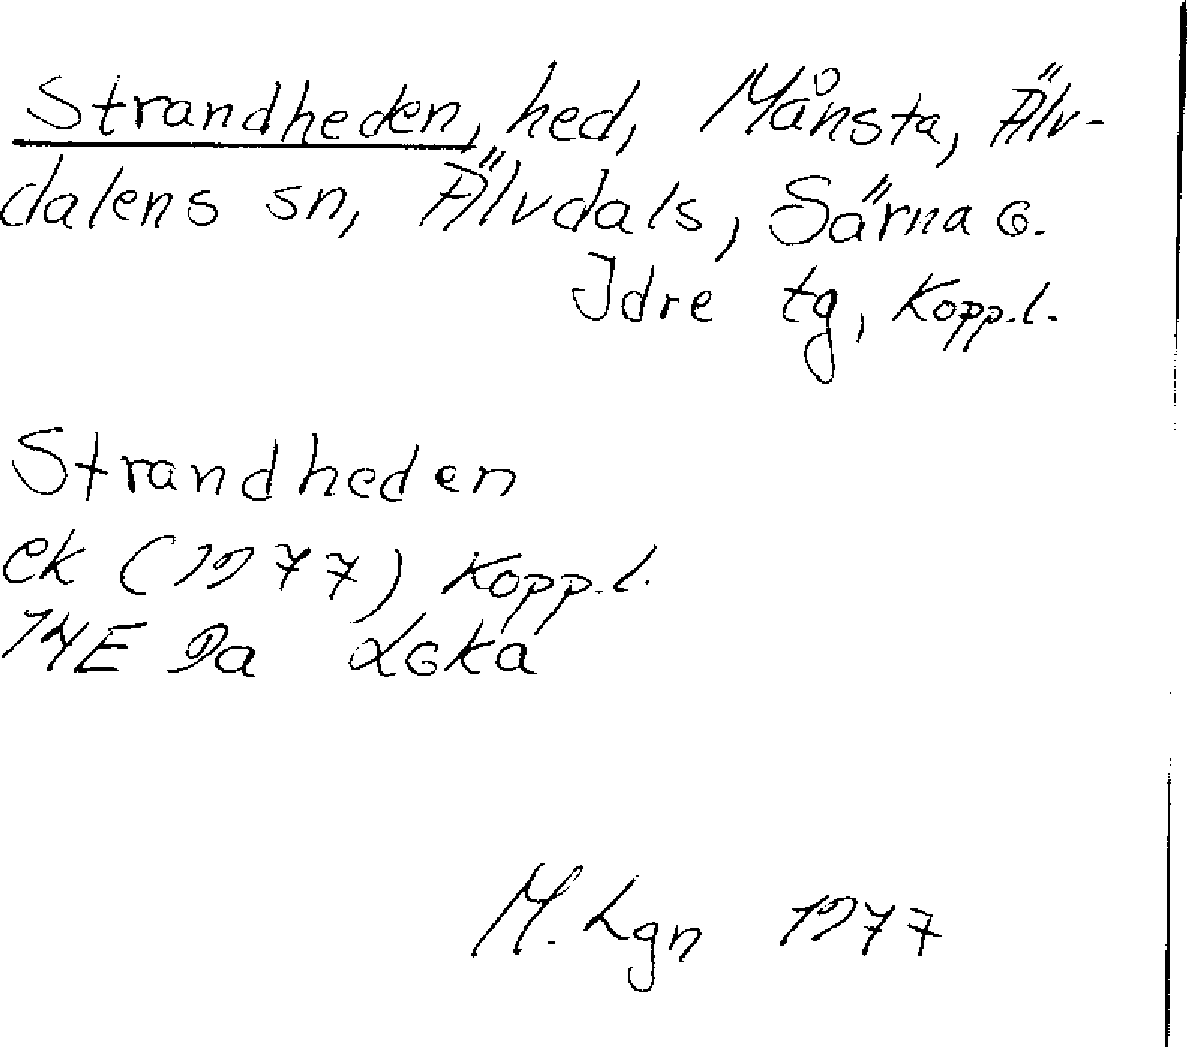 Strandheden, hed, Månsta, Älv-
dalens sn, Älvdals, Särna o.
Idre tg, Kopp.l.
Strandheden
ek (1977) Kopp.l.
14E Da Loka
M. Lgn 1977